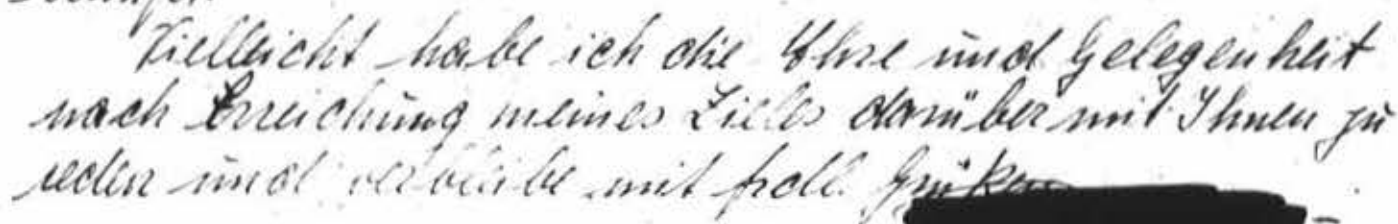 Vielleicht habe ich die Ehre und Gelegenheit
nach Erreichung meines Zieles darüber mit Ihnen zu
reden und verbleibe mit frdl. Grüßen